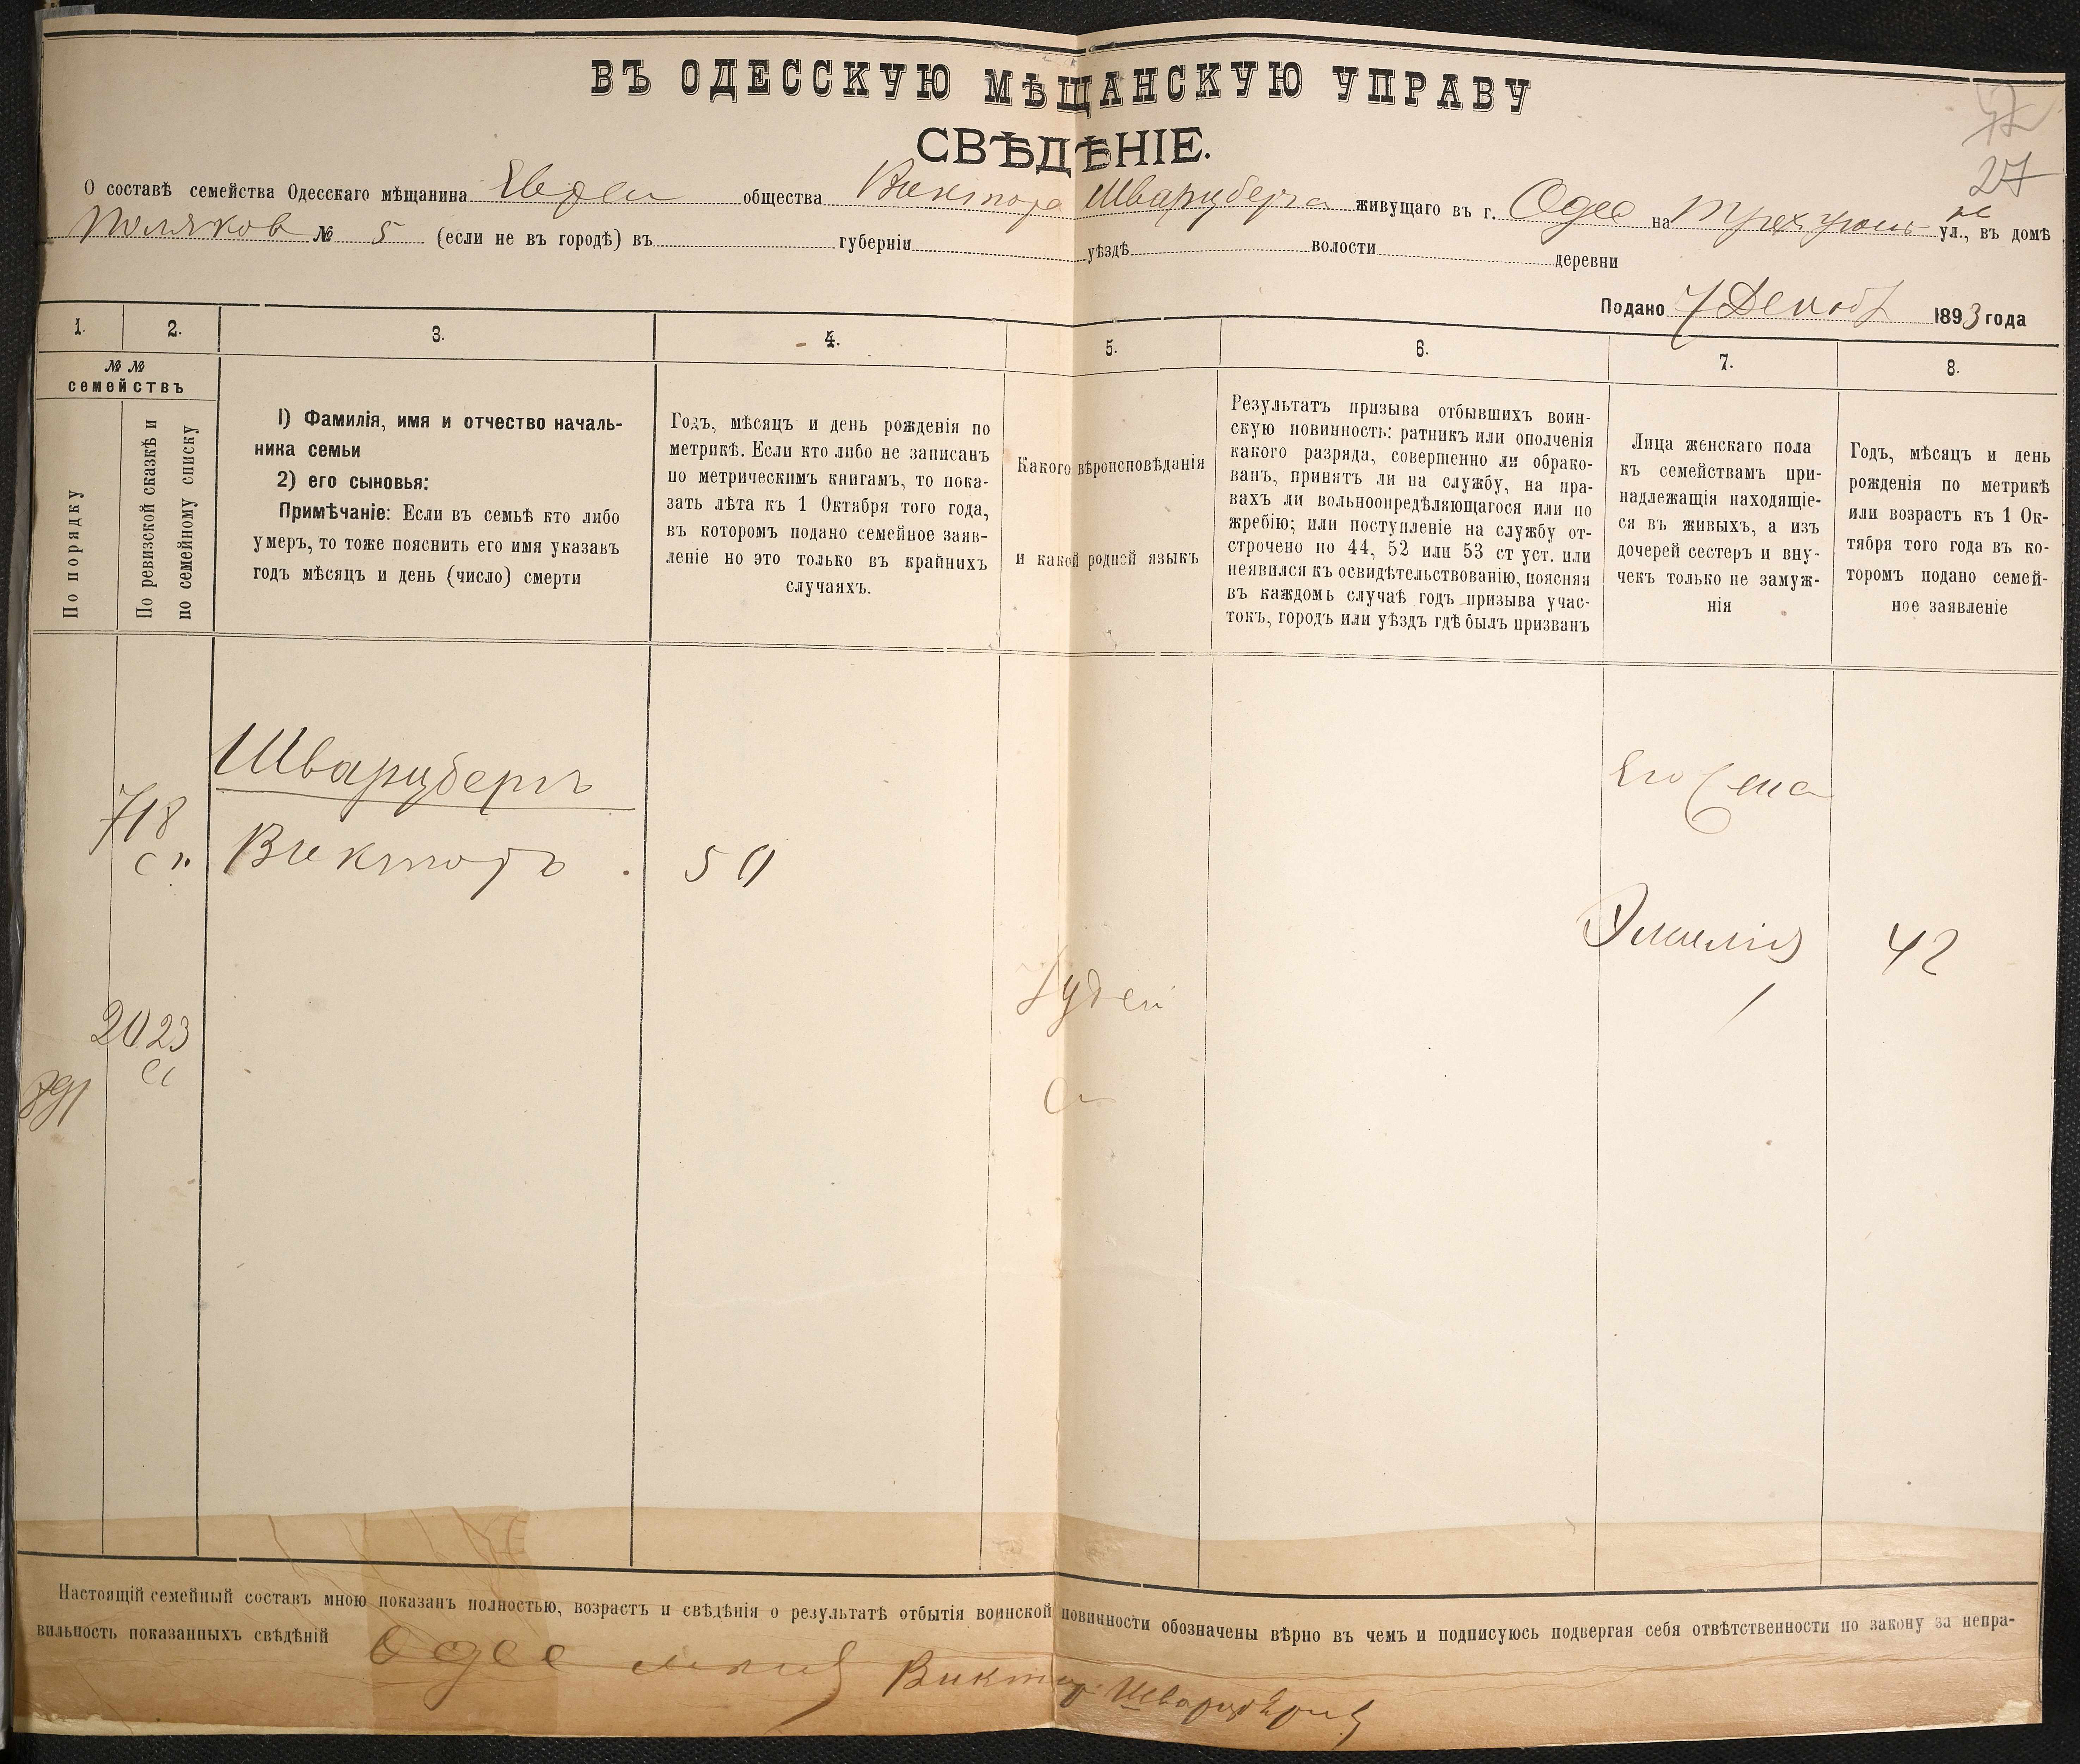 ВЪ ОДЕССКУЮ МѢЩАНСКУЮ УПРАВУ
47
СВѢДѢНІЕ.
27
О составѣ семейства Одесскаго мѣщанина Еврей общества Виктора Шварцберга живущаго въ г. Одес на Треугольн ул., въ домѣ
Поляков № 5 (если не въ городѣ) въ губерніи уѣздѣ волости деревни
Подано 7 Декабр 1893 года
1. 2. 3. 4. 5. 6. 7. 8.
№ №
семействъ
По порядку
По ревизской сказкѣ и
по семейному списку
1) Фамилія, имя и отчество началь-
ника семьи
2) его сыновья:
Примѣчаніе: Если въ семьѣ кто либо
умеръ, то тоже пояснить его имя указавъ
годъ мѣсяцъ и день (число) смерти
Годъ, мѣсяцъ и день рожденія по
метрикѣ. Если кто либо не записанъ
по метрическимъ книгамъ, то пока-
зать лѣта къ 1 Октября того года,
въ которомъ подано семейное заяв-
леніе но это только въ крайнихъ
случаяхъ.
Какого вѣроисповѣданія
и какой родной языкъ
Результатъ призыва отбывшихъ воин-
скую повинность: ратникъ или ополченія
какого разряда, совершенно ли обрако-
ванъ, принятъ ли на службу, на пра-
вахъ ли вольноопредѣляющагося или по
жребію; или поступленіе на службу от-
строчено по 44, 52 или 53 ст уст. или
неявился къ освидѣтельствованію, поясняя
въ каждомъ случаѣ годъ призыва учас-
токъ, городъ или уѣздъ гдѣ былъ призванъ
Лица женскаго пола
къ семействамъ при-
надлежащія находящіе-
ся въ живыхъ, а изъ
дочерей сестеръ и вну-
чекъ только не замуж-
нія
Годъ, мѣсяцъ и день
рожденія по метрикѣ
или возрастъ къ 1 Ок-
тября того года въ ко-
торомъ подано семей-
ное заявленіе
Шварцбергъ
718
Викторъ. 50
Эмилія 42
Іудей
2023
891
Настоящій семейный составъ мною показанъ полностью, возрастъ и свѣдѣнія о результатѣ отбытія воинской повинности обозначены вѣрно въ чемъ и подписуюсь подвергая себя отвѣтственности по закону за непра-
вильность показанныхъ свѣдѣній Одес Виктор Шварцберг